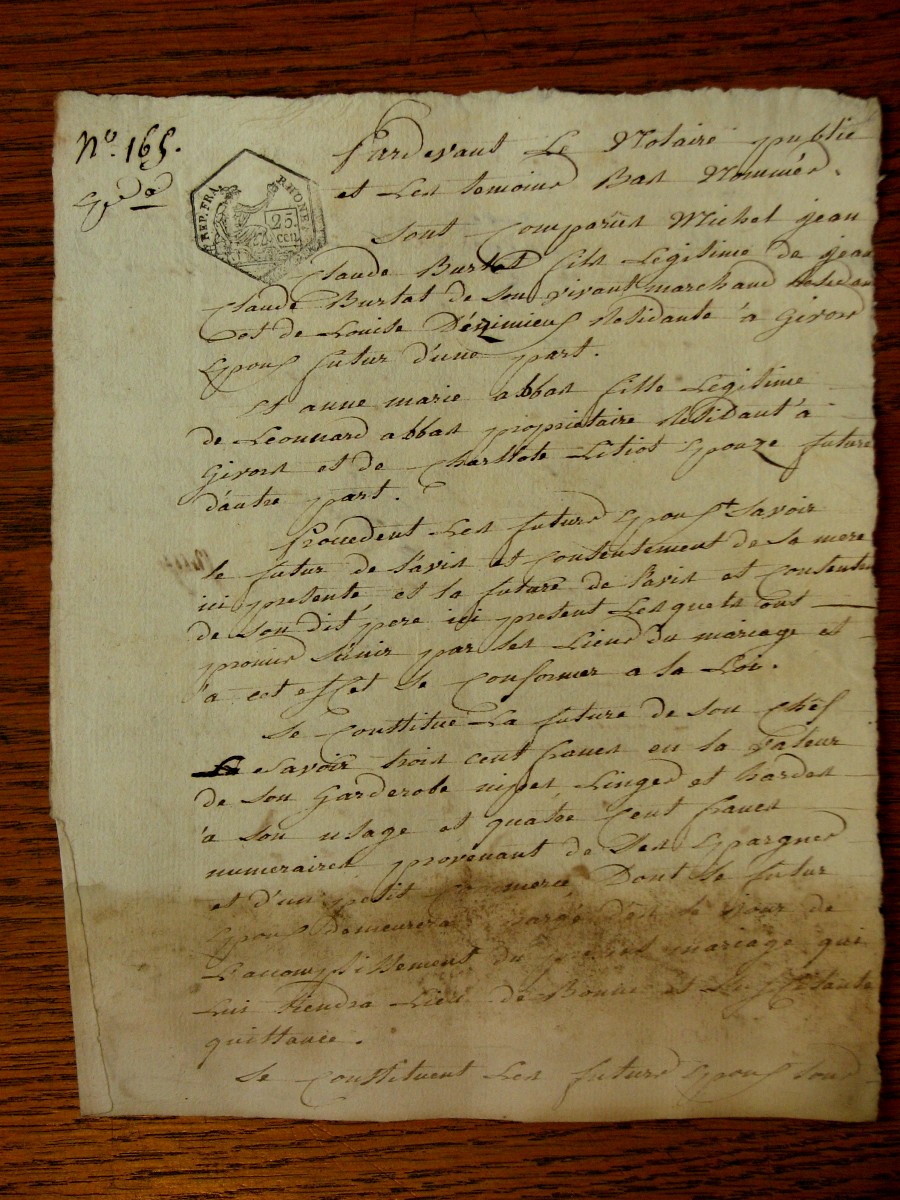 N° 165.
REP. FRA.
RHONE
25
cen
Pardevant Le Notaire public
et Les temoins Bas Nommés.
Sont Comparus Michel jean
Claude Burtat fils Légitime de jean
Claude Burtat de son vivant marchand
et de Louise Résidante à Giron
Epoux futur d'une part.
Et anne marie abban fille Légitime
de Leonnard abban propriétaire Résidant à
Giron et de Charllote Litiot Epouze future
d'autre part.
Procedent Les futurs Epoux savoir
le futur de l'avis et Consentement de sa mere
ici presente et la future de l'avis et
de son dit pere ici present Lesquels ont
promis s'unir par les Liens du mariage et
a cet effet se Conformer a la Loi.
Se Constitue La future de son Chef
savoir trois cent francs en la valeur
de son Garderobe nipes Linges et hardes
à son usage et quatre Cent francs
numeraires provenant de Ses Epargnes
et d'un petit Commerce Dont le futur
Epoux demeurera chargé dès le jour de
L'accomplissement du present mariage qui
Lui tiendra Lieu de Bonne et suffisante
quittance.
Se Constituent Les futurs Epoux tous